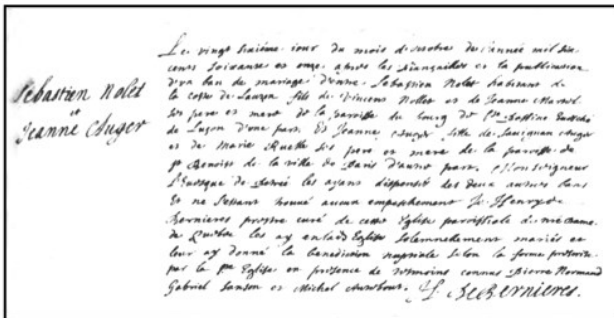 Sebastien Nolet
et
Jeanne Auger
Le vingt sixiéme jour du mois d'octobre de l'année mil six
cents soixante et onze, apres les fiançailles et la publication
d'un ban de mariage d'entre Sebastien Nolet habitant de
la coste de Lauzon fils de Vincens Nollet et de Jeanne
ses pere et mere de la paroisse du bourg de Evesché
de Luçon d'une part, Et Jeanne Auger fille de Auger
et de Marie Ruelle ses pere et mere de la paroisse de
St Benoist de la ville de Paris d'autre part, Monseigneur
l'Evesque de Petrée les ayant dispensés des deux autres bans
Et ne s'estant trouué aucun empeschement Je Henry de
Bernieres prestre curé de cette Eglise paroissiale de nre Dame
de Quebec les ay en lade Eglise solemnellement mariés et
leur ay donné la benediction nuptiale selon la forme prescrite
par la Ste Eglise en presence de temoins connus Pierre Normand
Gabriel Sanson et Michel H. de Bernieres.